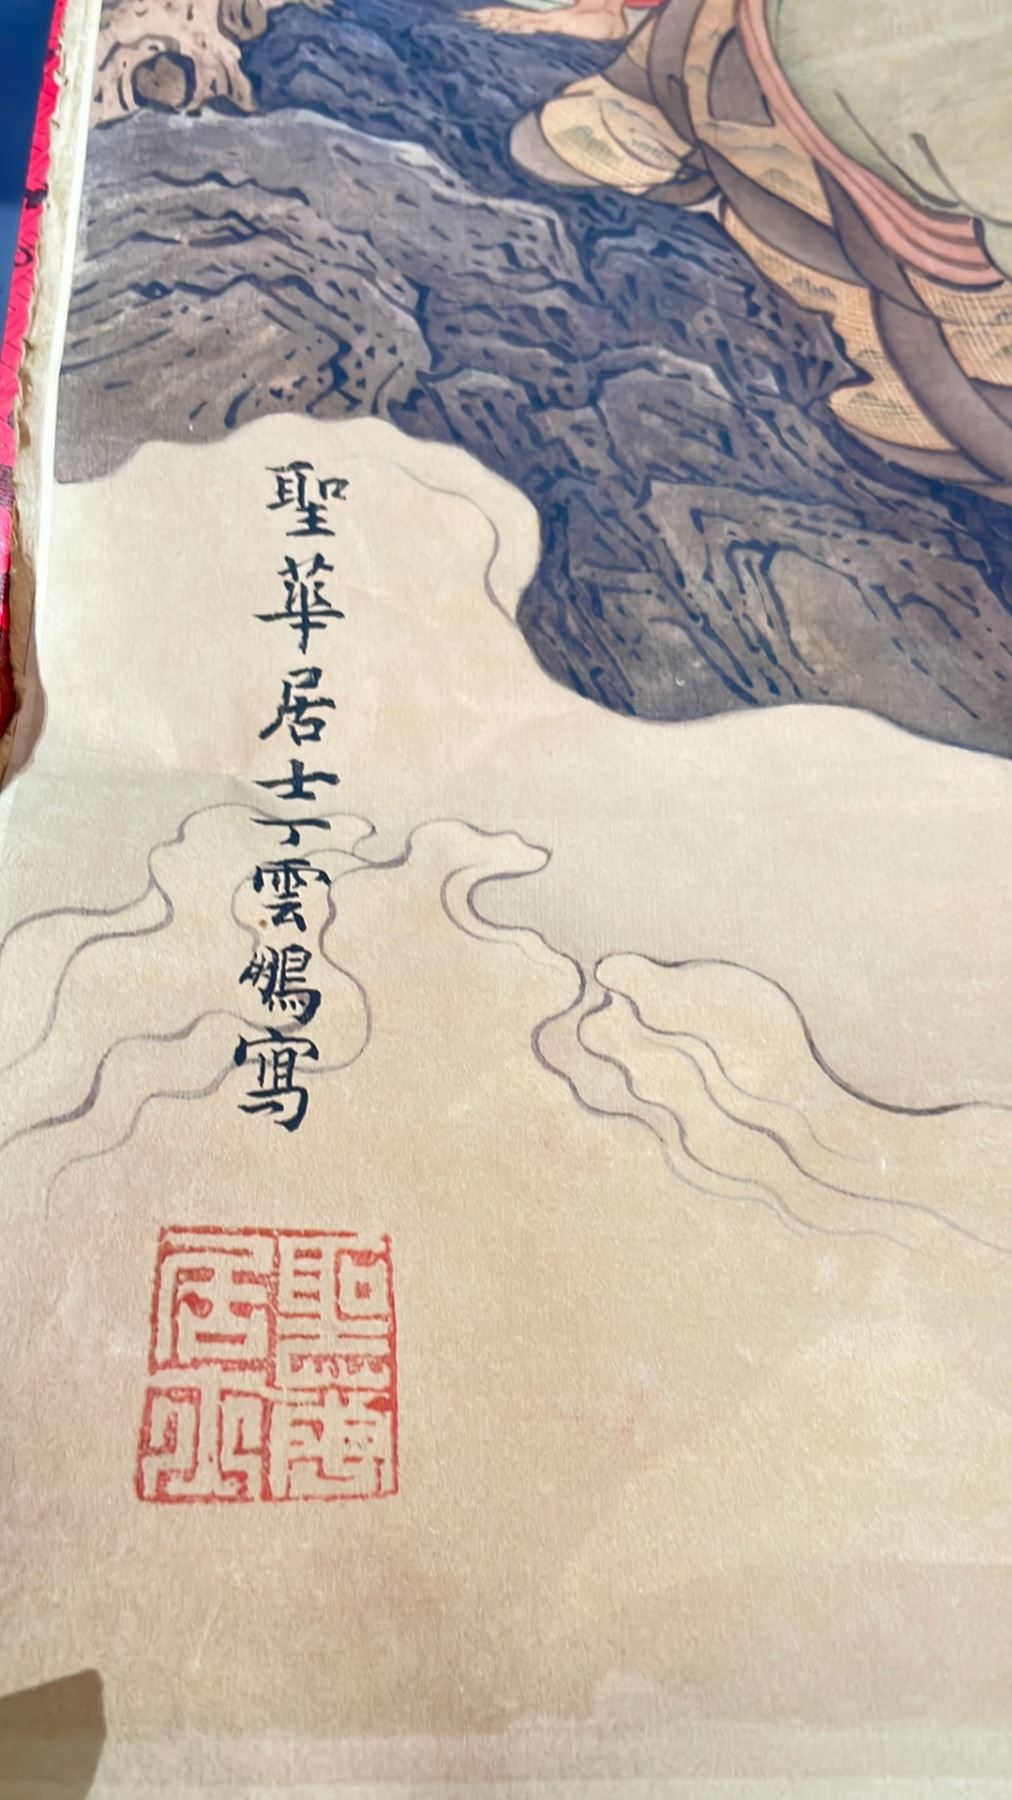 聖華居士丁雲鵬寫
聖
居